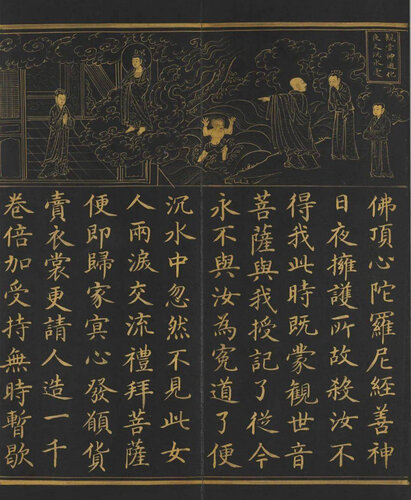 佛頂心陀羅尼經善神
日夜擁護所故殺汝不
得我此時既蒙觀世音
菩薩與我授記了從今
永不與汝為寃道了便
沉水中忽然不見此女
人兩淚交流禮拜菩薩
便即歸家冥心發願貨
賣衣裳更請人造一千
卷倍加受持無時暫歇